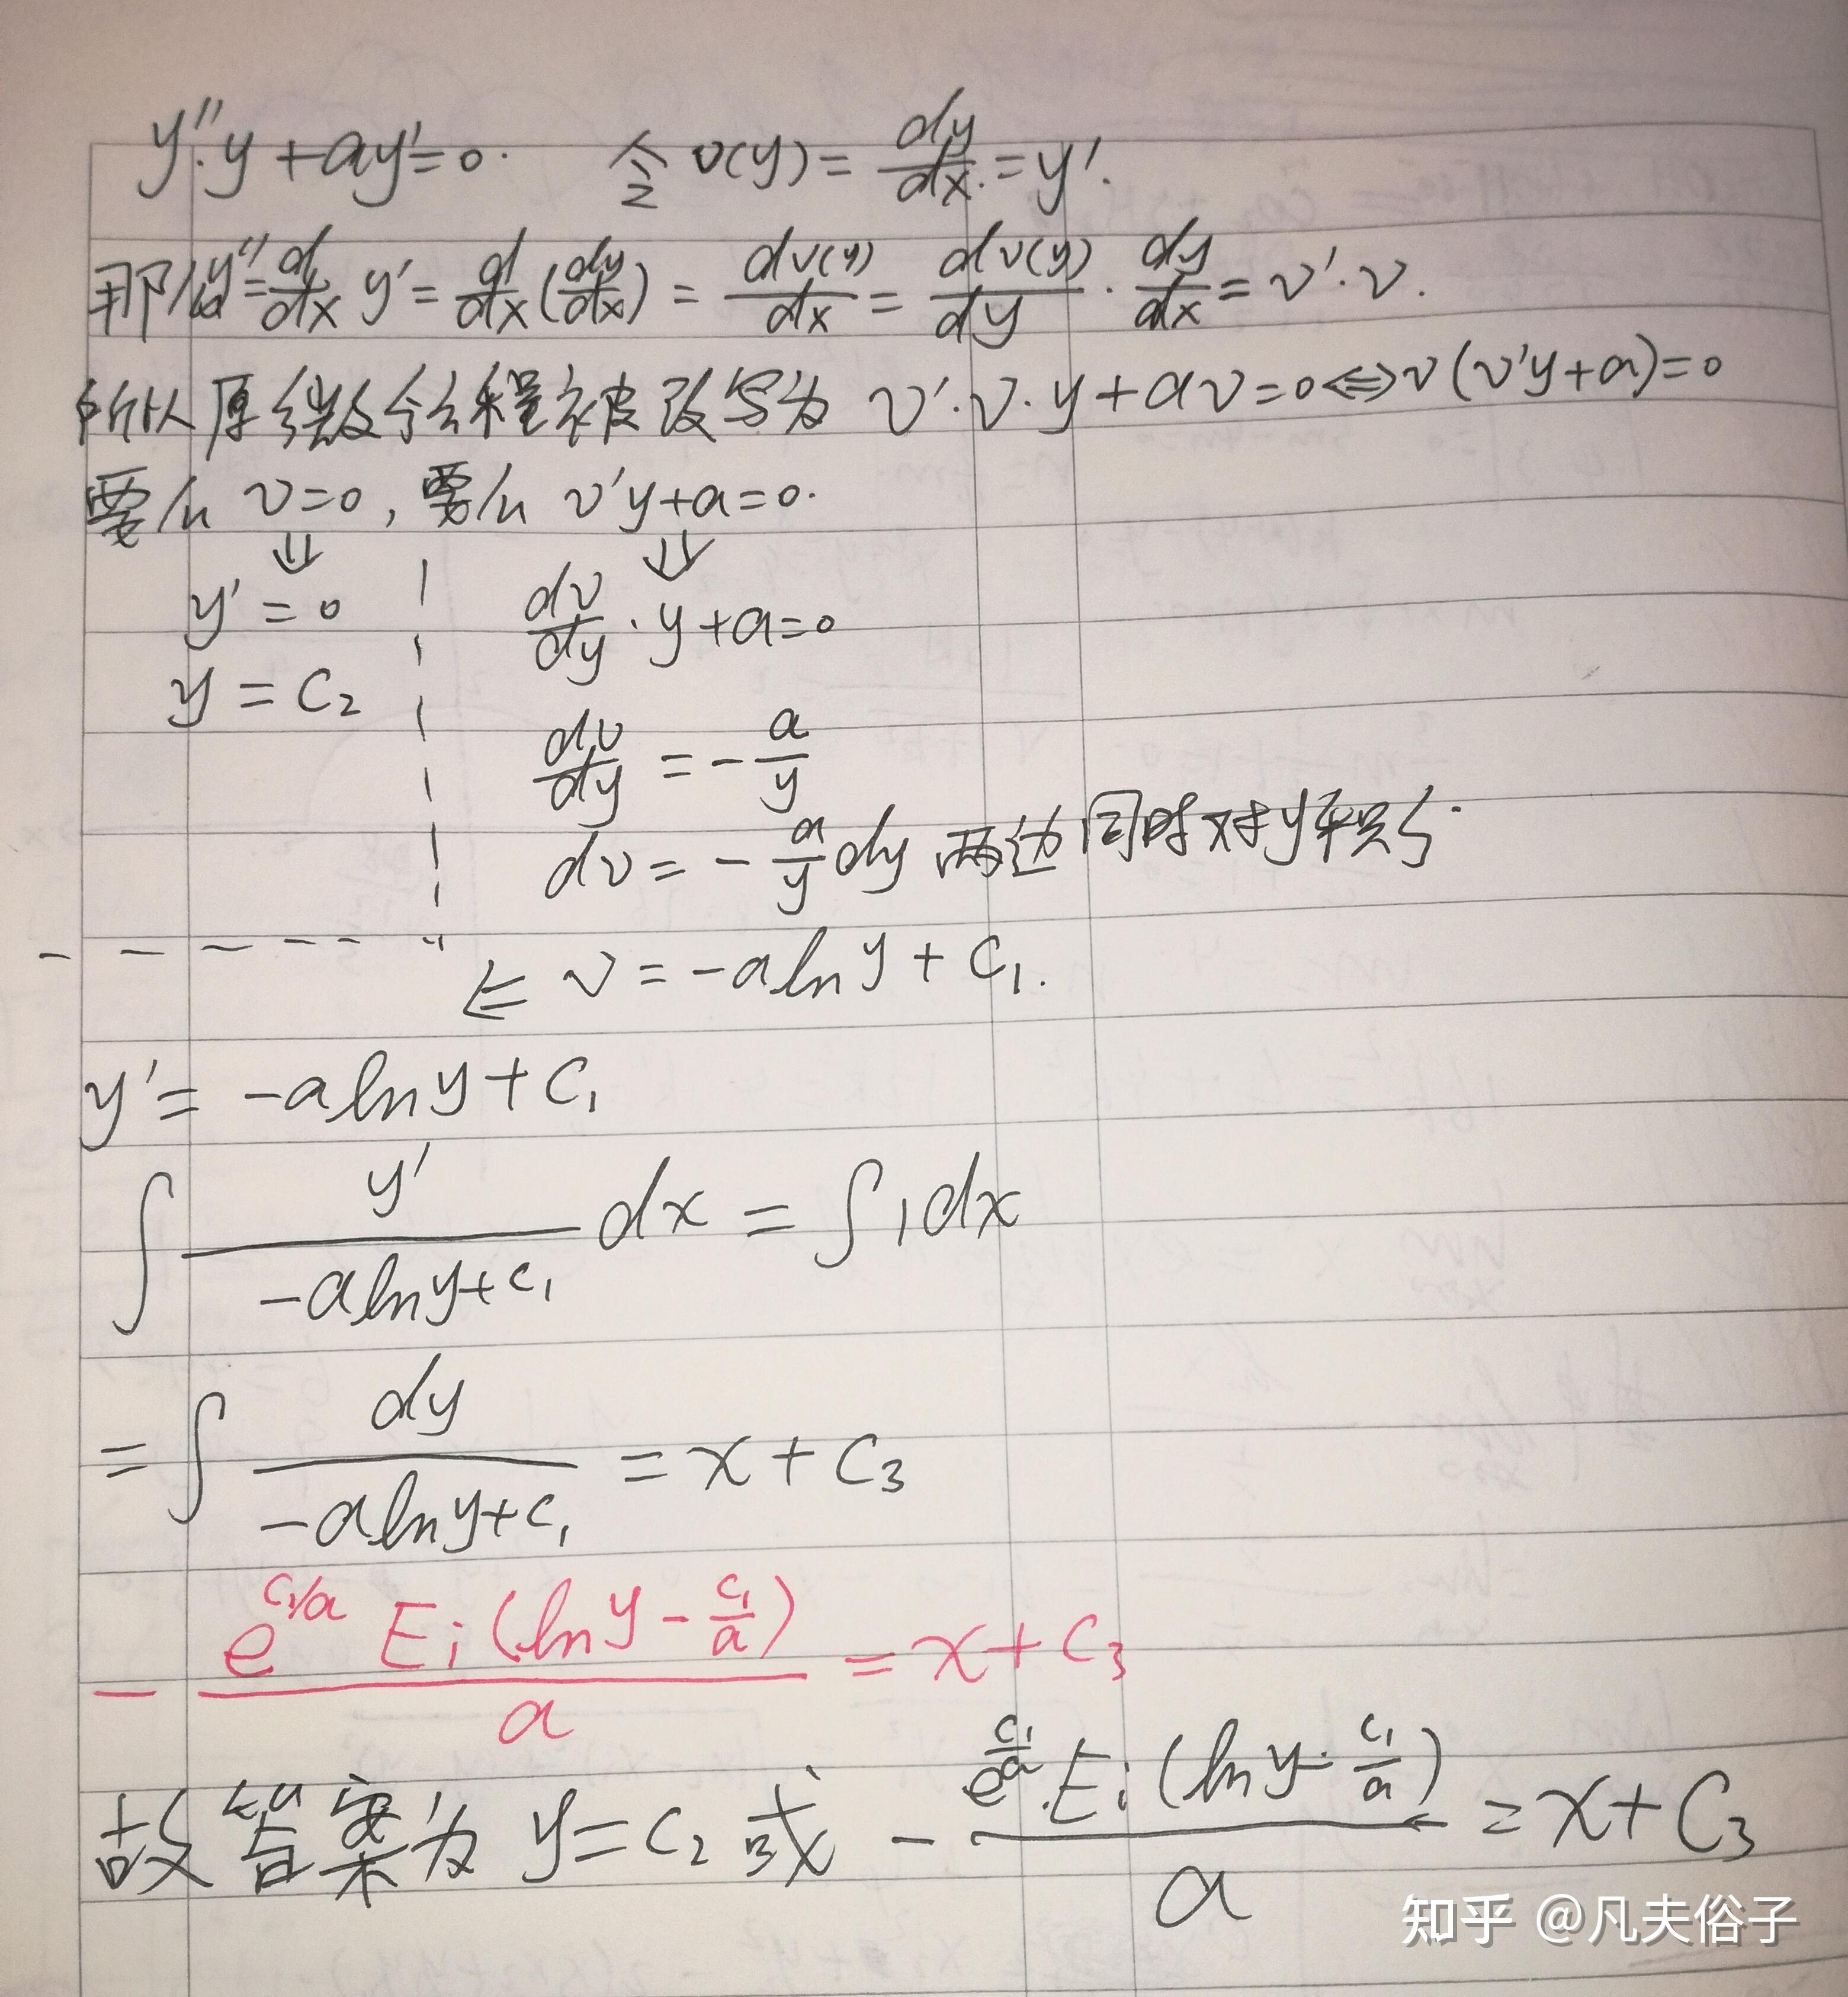 y''·y+ay'=0. 令 v(y)=dy/dx=y'.
那么y''=d/dx y'=d/dx(dy/dx)=dv(y)/dx=dv(y)/dy·dy/dx=v'·v.
所以原微分方程被改写为 v'·v·y+av=0⇔v(v'y+a)=0
要么 v=0,要么 v'y+a=0.
⇓ ⇓
y'=0 dv/dy·y+a=0
y=C₂
dv/dy=-a/y
dv=-a/y dy 两边同时对y积分.
⇐ v=-alny+C₁.
y'=-alny+C₁
∫y'/(-alny+C₁)dx=∫1dx
=∫dy/(-alny+C₁)=x+C₃
-e^(C₁/a)Ei(lny-C₁/a)/a=x+C₃
故答案为 y=C₂ 或 -e^(C₁/a)·Ei(lny-C₁/a)/a=x+C₃
知乎 @凡夫俗子